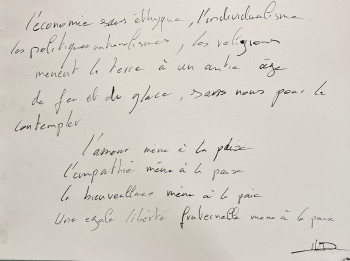 l'économie sans éthyque, l'individualisme
les politiques naturalismes, les religions
mènent la terre à un autre âge
de fer et de glace, sans nous pour le
contempler
l'amour mène à la paix
l'empathie mène à la paix
la bienveillance mène à la paix
Une egale liberté fraternelle mène à la paix